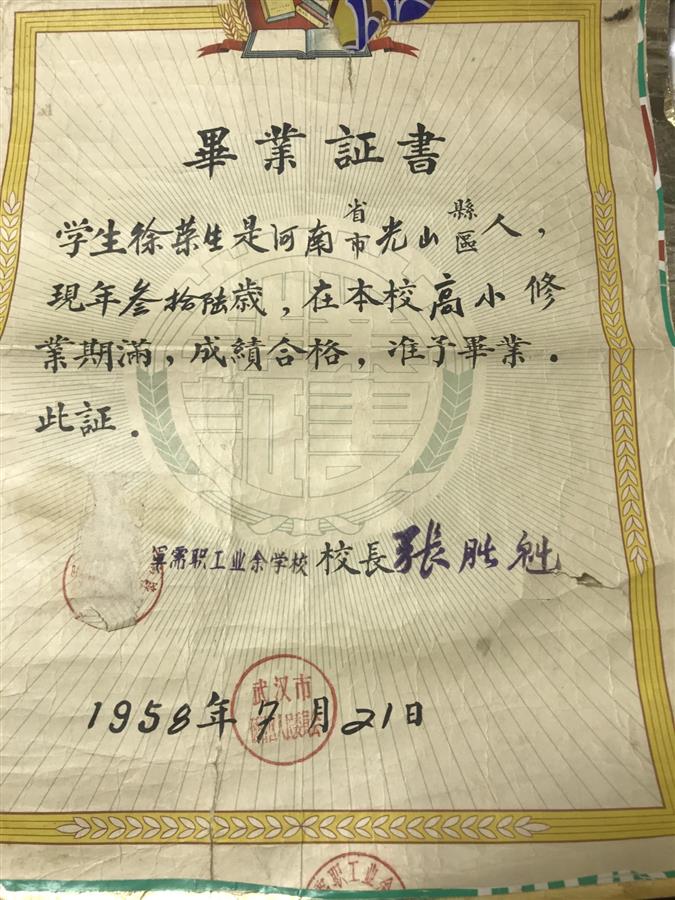 畢業証書
学生徐荣生是河南省市光山縣區人，
現年叁拾陆歳，在本校高小修
業期滿，成績合格，准予畢業．
此証．
軍需职工业余学校 校長 張胜魁
武汉市
人民委員会
1958年7月21日
需职工业余